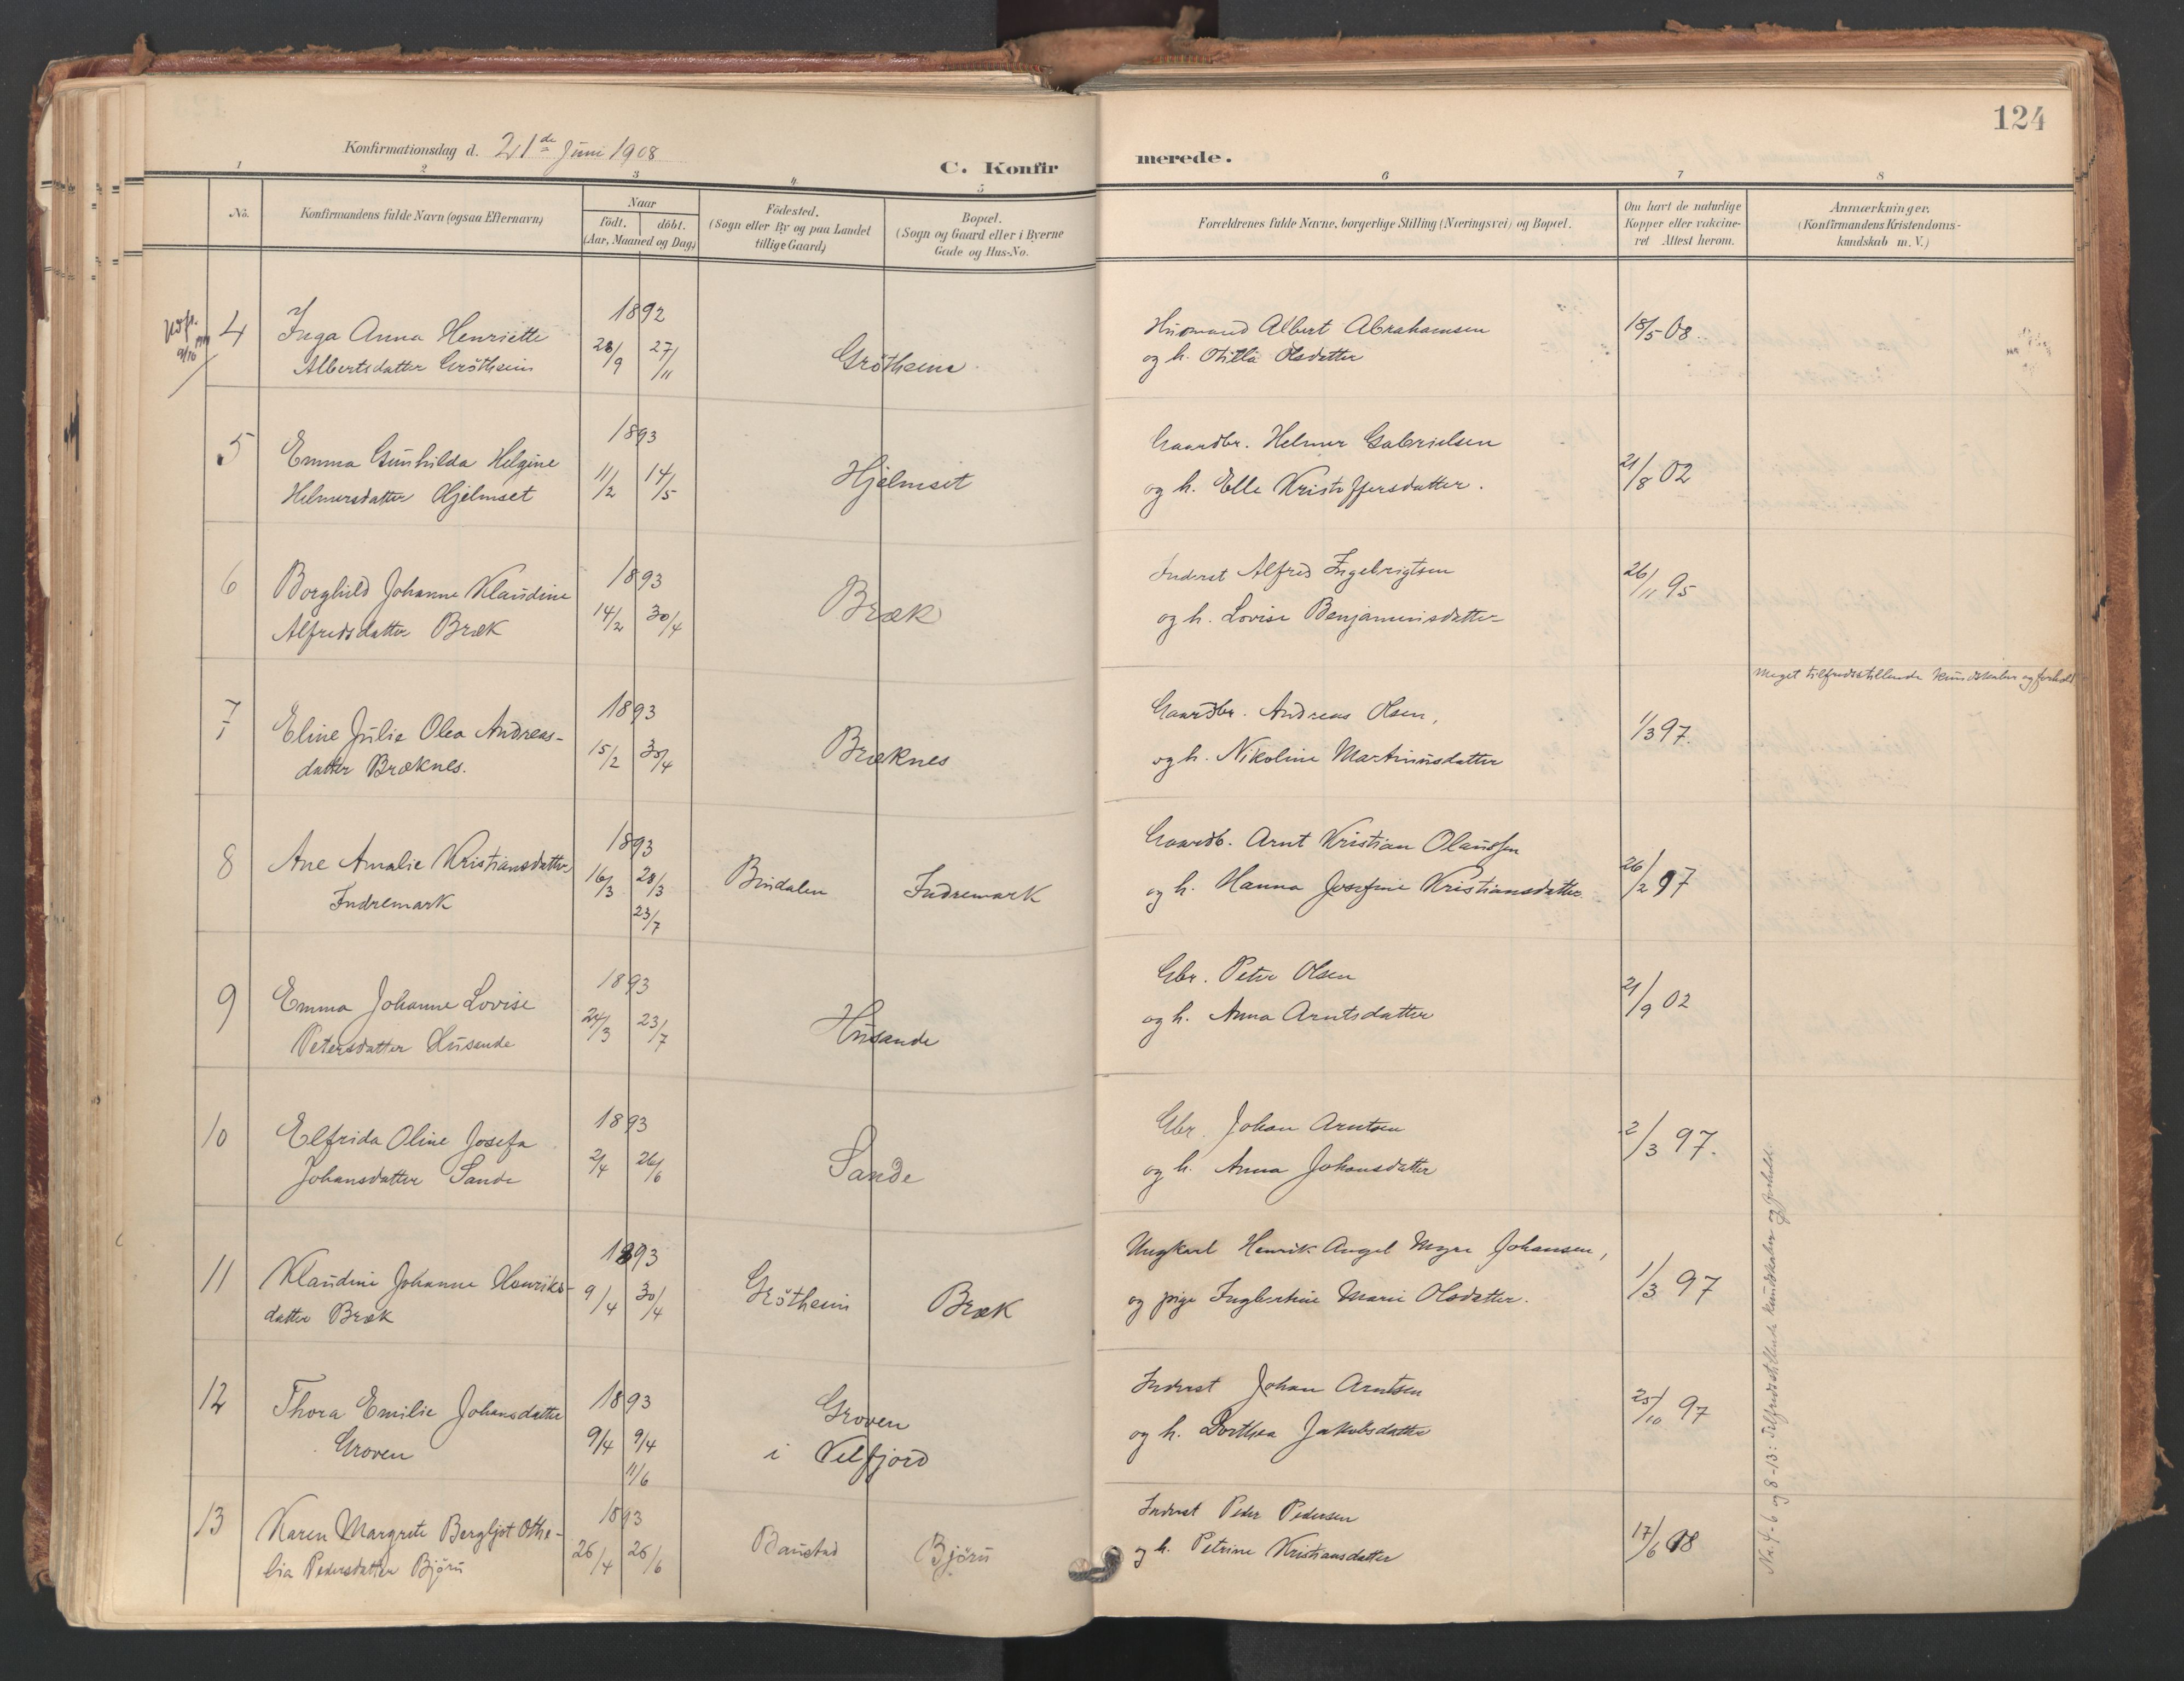 124
Konfirmationsdag d. 21de Juni 1908
C. Konfirmerede.
1 2 3 4 5 6 7 8
No.
Konfirmandens fulde Navn (ogsaa Efternavn)
Naar
födt. döbt.
(Aar, Maaned og Dag)
Födested.
(Sogn eller By og paa Landet
tillige Gaard)
Bopæl.
(Sogn og Gaard eller i Byerne
Gade og Hus-No.
Forældrenes fulde Navne, borgerlige Stilling (Næringsvei) og Bopæl.
Om havt de naturlige
Kopper eller vakcine-
ret Attest herom.
Anmærkninger.
(Konfirmandens Kristendoms-
kundskab m. V.)
Udf.
9/10
4 Inga Anna Henriette 1892
Albertsdatter Grötheim 28/9 27/11 Grötheim
Husmand Albert Abrahamsen 18/5 08.
og h. Otillia Olsdatter
5 Emma Gunhilda Helgine 1893
Helmersdatter Hjelmset 11/2 14/5 Hjelmset
Gaardbr. Helmer Gabrielsen
og h. Elle Kristoffersdatter. 21/8 02
6 Borghild Johanne Klaudine 1893
Alfredsdatter Bræk 14/2 30/4 Bræk
Inderst Alfred Ingebrigtsen 26/11 95
og h. Lovise Benjaminsdatter
Meget tilfredsstillende kundskaber og forhold
7 Eline Julie Olea Andreas- 1893
datter Bræknes. 15/2 30/4 Bræknes
Gaardbr. Andreas Olsen, 1/3 97.
og h. Nikoline Martinusdatter
8 Ane Amalie Kristiansdatter 1893
Indremark 16/3 28/3 Bindalen Indremark
23/7
Gaardb. Arnt Kristian Olaussen
og h. Hanna Josefine Kristiansdatter 26/2 97
9 Emma Johanne Lovise 1893
Petersdatter Husande 24/3 23/7 Husande
Gbr. Peter Olsen
og h. Anna Arntsdatter 21/9 02
10 Elfrida Oline Josefa 1893
Johansdatter Sande 2/4 26/6 Sande
Gbr. Johan Arntsen 2/3 97.
og h. Anna Johansdatter
11 Klaudine Johanne Henriks- 1893
datter Bræk 9/4 30/4 Grötheim Bræk
Ungkarl Henrik Angel Myre Johansen,
og pige Ingbertine Marie Olsdatter. 1/3 97
12 Thora Emilie Johansdatter 1893 Groven
Groven 9/4 9/4 i Velfjord
11/6
Inderst Johan Arntsen 25/10 97
og h. Dorthea Jakobsdatter
13 Karen Margrete Bergljot Othe- 1893
lia Pedersdatter Björu 26/4 26/6 Baustad Björu
Inderst Peder Pedersen
og h. Petrine Kristiansdatter 17/6 08
No. 4-6 og 8-13: Tilfredsstillende kundskaber og forhold.